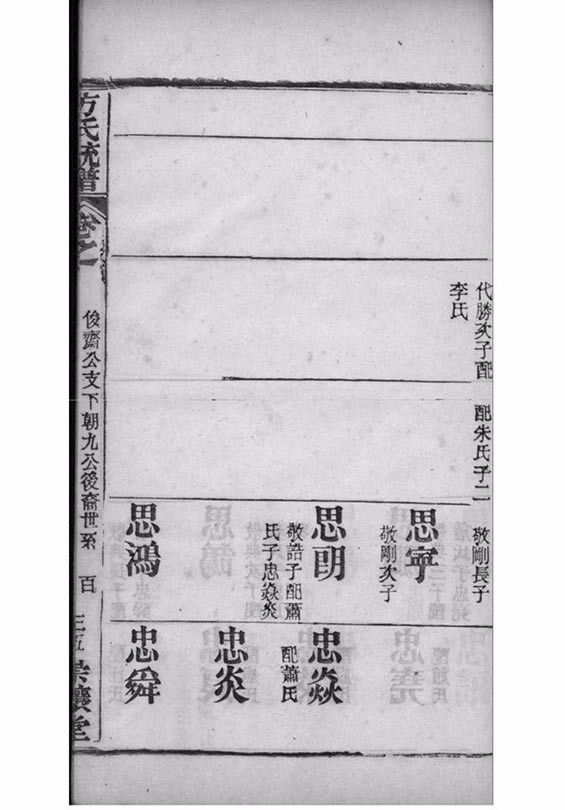 代勝次子配
李氏
配朱氏子二
敬剛長子
思寧
敬剛次子
思明
敬誥子配蕭
氏子忠焱炎
思鴻
忠焱
配蕭氏
忠炎
忠舜
方氏統譜
卷之
俊齋公支下朝九公後裔世系
百
三五
堂